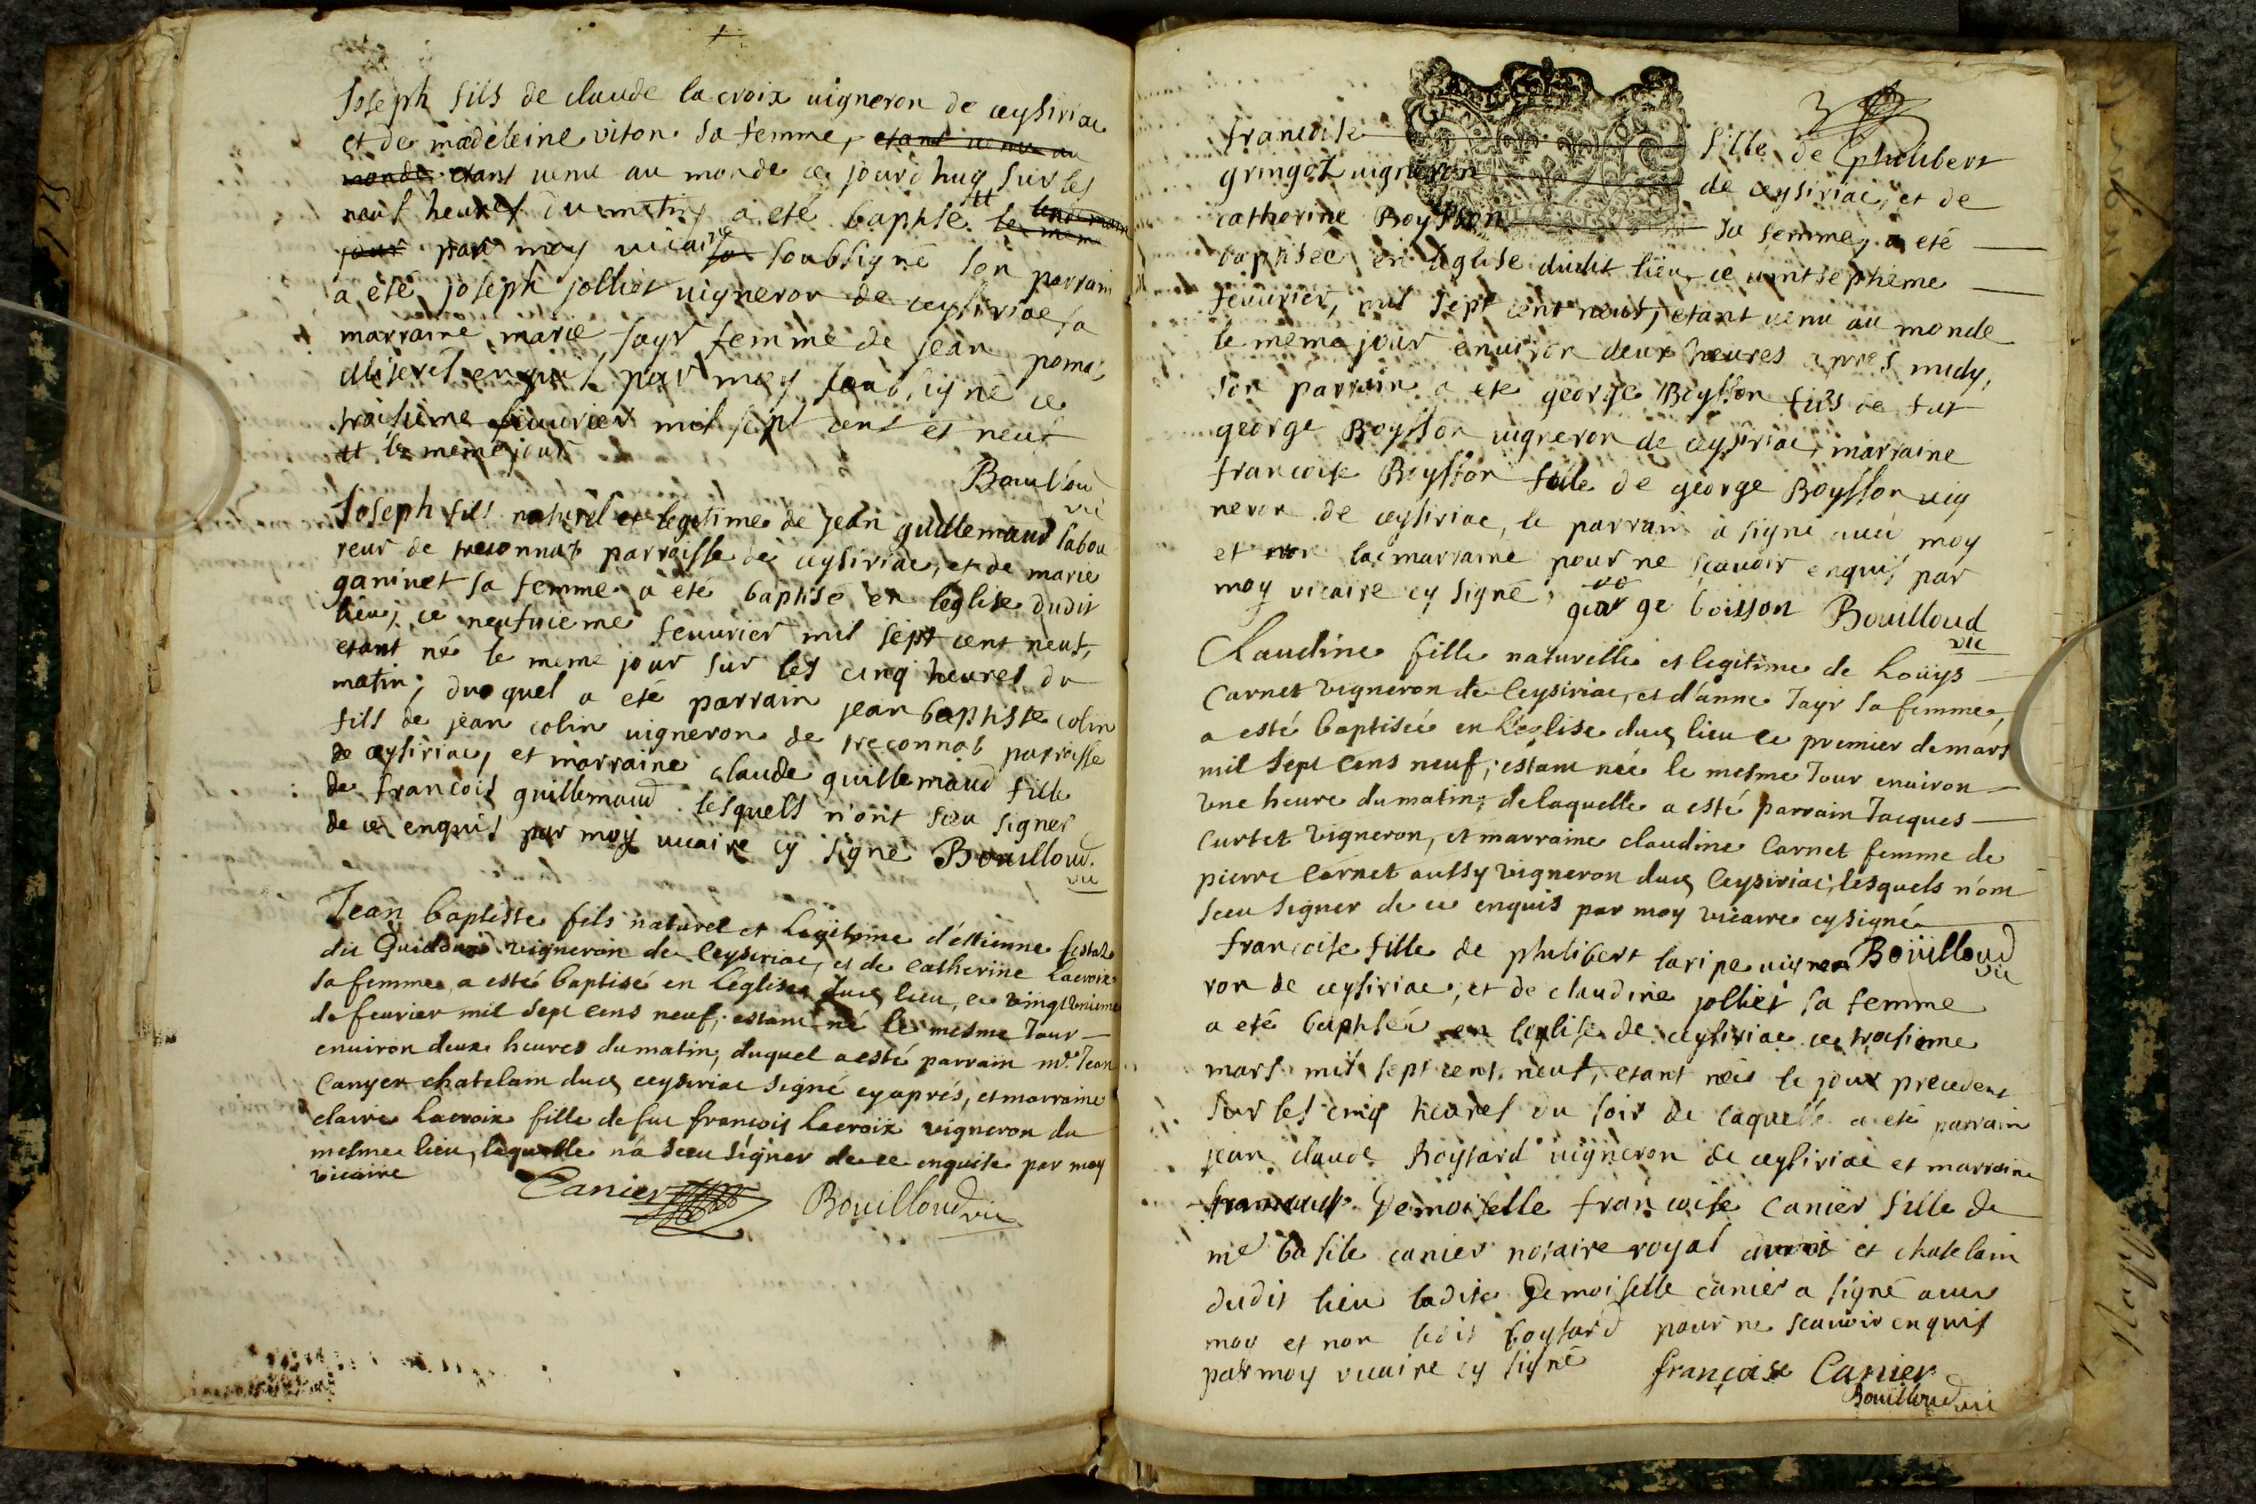 Joseph fils de claude lacroix uigneron de ceysiriac
et de madeleine viton sa femme, etant venu au
monde etant uenu au monde ce jourdhuy sur les
neuf heures du matin a eté baptisé tt le lendemain le mem
jour par moy vicaire so soubsigné son parrain
a eté joseph jollier uigneron de ceysiriac sa
marraine marie sayr femme de jean
enquis par moy soubsigné ce
troisieme feuurier mil sept cent et neuf
tt le meme jour
Bouilloud
vic
Joseph fils naturel et legitime de jean guillemaud labou
reur de treconnas parroisse de ceysiriac, et de marie
ganinet sa femme a eté baptisé en l'eglise dudit
lieu, ce neufuieme feuurier mil sept cent neuf,
etant né le meme jour sur les cinq heures du
matin; duquel a eté parrain jean baptiste colin
fils de jean colin uigneron de treconnas parroisse
de ceysiriac, et marraine claude guillemaud fille
de francois guillemaud lesquels n'ont sceu signer
de ce enquis par moy uicaire cy signé Bouilloud
vic
Jean baptiste fils naturel et legitime d'estienne
dit vigneron de Ceysiriac, et de Catherine Lacroix
sa femme, a esté baptisé en l'eglise dud lieu, ce vingtunieme
de feurier mil sept cens neuf, estant né le mesme Jour
enuiron deux heures du matin, duquel a esté parrain mre Jean
Canyer chatelain dud ceysiriac signé cy aprés, et marraine
claire Lacroix fille de fue francois Lacroix vigneron du
mesme lieu, laquelle n'a sceu signer de ce enquise par moy
vicaire
Canier Bouilloud vic
3
francoise fille de philibert
gringoz uigneron de ceysiriac, et de
catherine Boysson sa femme, a eté
baptisee en l'eglise dudit lieu, ce uintseptieme
feuurier, mil sept cent neuf, etant uenu au monde
le meme jour enuiron deux heures apres midy,
son parrain a eté george Boysson fils de fut
george Boysson uigneron de ceysiriac, marraine
francoise Boysson fille de george Boysson uig
neron de ceysiriac, le parrain a signé auec moy
et non la marraine pour ne scauoir enquis par
moy vicaire cy signé. george boisson Bouilloud
vic
Claudine fille naturelle et legitime de Loüys
Carnet vigneron de Ceysiriac, et d'anne Jayr sa femme,
a esté baptisée en l'eglise dud lieu ce premier de mars
mil sept cens neuf, estant née le mesme Jour enuiron
vne heure du matin; de laquelle a esté parrain Jacques
Curtet vigneron, et marraine claudine Carnet femme de
pierre Carnet aussy vigneron dud Ceysiriac, lesquels n'ont
sceu signer de ce enquis par moy vicaire cy signé
Bouilloud
vic
francoise fille de philibert laripe uigne
ron de ceysiriac, et de claudine jollier sa femme
a eté baptisée en l'eglise de ceysiriac ce troisieme
mars mil sept cent neuf, etant née le jour precedent
sur les cinq heures du soir de laquelle a eté parrain
jean claude Boysard uigneron de ceysiriac et marraine
Demoiselle francoise Canier fille de
me basile canier notaire royal et chatelain
dudit lieu ladite Demoiselle canier a signé auec
moy et non ledit boysard pour ne scauoir enquis
par moy vicaire cy signé françoise Canier
Bouilloud vic